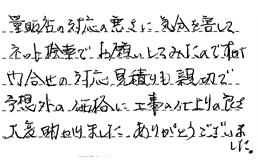 量販店の対応の悪さに気分を害して
ネット検索でお願いしてみたのですが
問合せの対応、見積りも親切で
予想外の価格に工事の仕上りの良さ
大変助かりました。ありがとうございま
した。